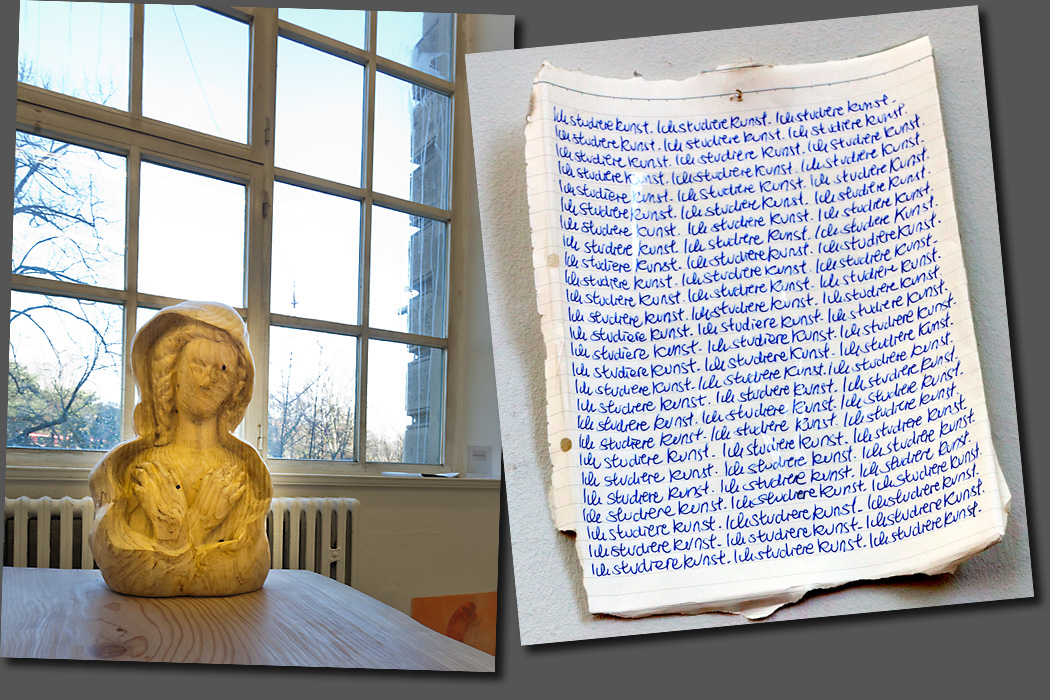 Ich studiere Kunst. Ich studiere Kunst. Ich studiere Kunst.
Ich studiere Kunst. Ich studiere Kunst. Ich studiere Kunst.
Ich studiere Kunst. Ich studiere Kunst. Ich studiere Kunst.
Ich studiere Kunst. Ich studiere Kunst. Ich studiere Kunst.
Ich studiere Kunst. Ich studiere Kunst. Ich studiere Kunst.
Ich studiere Kunst. Ich studiere Kunst. Ich studiere Kunst.
Ich studiere Kunst. Ich studiere Kunst. Ich studiere Kunst.
Ich studiere Kunst. Ich studiere Kunst. Ich studiere Kunst.
Ich studiere Kunst. Ich studiere Kunst. Ich studiere Kunst.
Ich studiere Kunst. Ich studiere Kunst. Ich studiere Kunst.
Ich studiere Kunst. Ich studiere Kunst. Ich studiere Kunst.
Ich studiere Kunst. Ich studiere Kunst. Ich studiere Kunst.
Ich studiere Kunst. Ich studiere Kunst. Ich studiere Kunst.
Ich studiere Kunst. Ich studiere Kunst. Ich studiere Kunst.
Ich studiere Kunst. Ich studiere Kunst. Ich studiere Kunst.
Ich studiere Kunst. Ich studiere Kunst. Ich studiere Kunst.
Ich studiere Kunst. Ich studiere Kunst. Ich studiere Kunst.
Ich studiere Kunst. Ich studiere Kunst. Ich studiere Kunst.
Ich studiere Kunst. Ich studiere Kunst. Ich studiere Kunst.
Ich studiere Kunst. Ich studiere Kunst. Ich studiere Kunst.
Ich studiere Kunst. Ich studiere Kunst. Ich studiere Kunst.
Ich studiere Kunst. Ich studiere Kunst. Ich studiere Kunst.
Ich studiere Kunst. Ich studiere Kunst. Ich studiere Kunst.
Ich studiere Kunst. Ich studiere Kunst. Ich studiere Kunst.
Ich studiere Kunst. Ich studiere Kunst. Ich studiere Kunst.
Ich studiere Kunst. Ich studiere Kunst. Ich studiere Kunst.